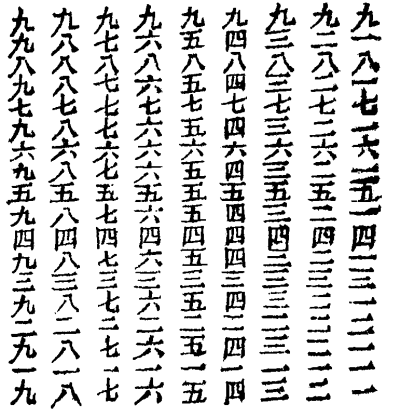 九一八一七一六一五一四一三一二一一一
九二八二七二六二五二四二三二二二一二
九三八三七三六三五三四三三三二三一三
九四八四七四六四五四四四三四二四一四
九五八五七五六五五五四五三五二五一五
九六八六七六六六五六四六三六二六一六
九七八七七七六七五七四七三七二七一七
九八八八七八六八五八四八三八二八一八
九九八九七九六九五九四九三九二九一九